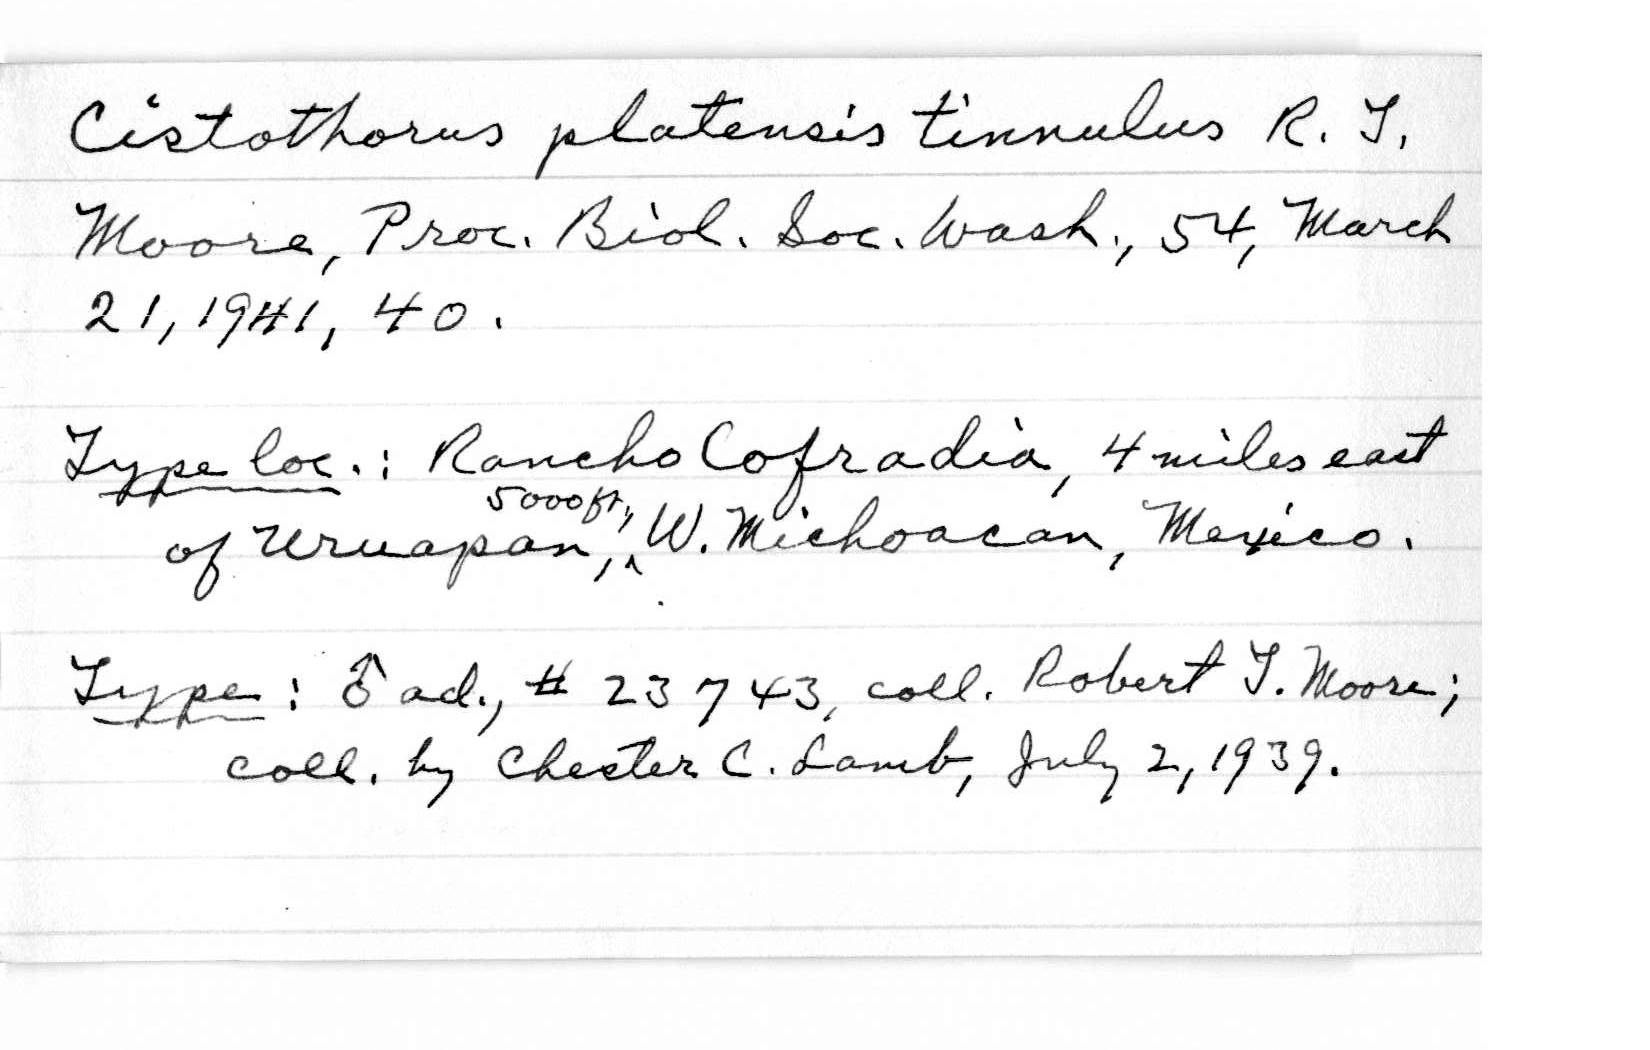 Cistothorus platensis tinnulus R. T.
Moore, Proc. Biol. Soc. Wash., 54, March
21, 1941, 40.
Type loc.: Rancho Cofradia, 4 miles east
of Uruapan, 5000 ft., W. Michoacan, Mexico.
Type: ♂ ad., # 23743, coll. Robert T. Moore;
coll. by Chester C. Lamb, July 2, 1939.